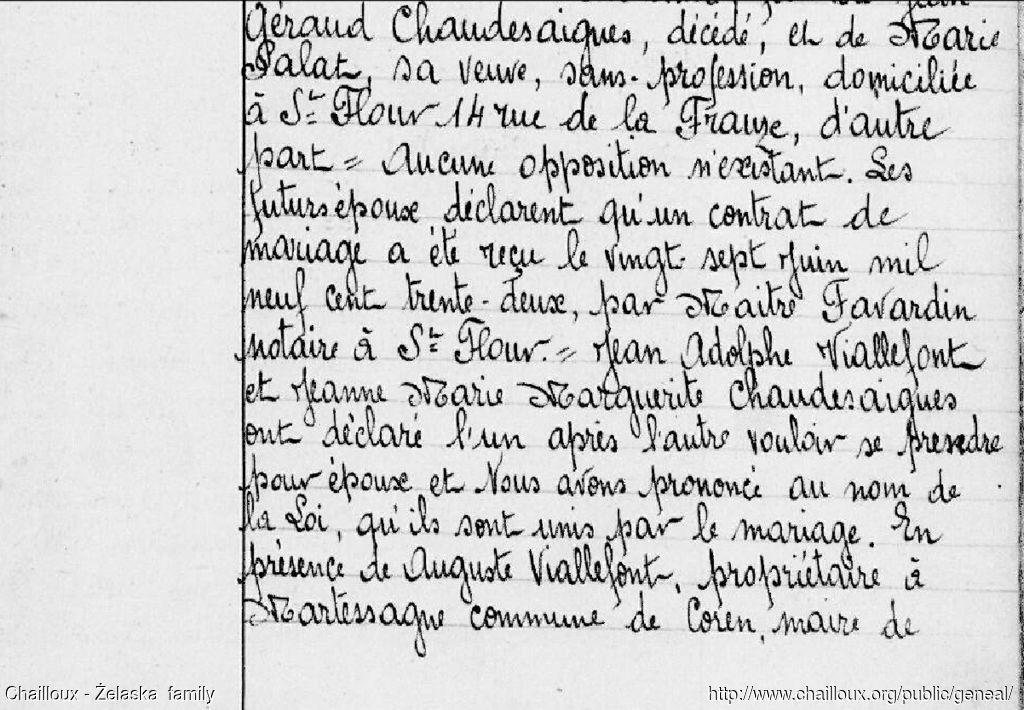 Géraud Chaudesaigues, décédé, et de Marie
Palat, sa veuve, sans-profession, domiciliée
à St Flour 14 rue de la Frauze, d'autre
part = Aucune opposition n'existant. Les
futurs époux déclarent qu'un contrat de
mariage a été reçu le vingt-sept Juin mil
neuf cent trente-deux, par Maitre Favardin
notaire à St Flour. = Jean Adolphe Viallefont
et Jeanne Marie Marguerite Chaudesaigues
ont déclaré l'un après l'autre vouloir se prendre
pour époux et Nous avons prononcé au nom de
la Loi, qu'ils sont unis par le mariage. En
présence de Auguste Viallefont, propriétaire à
Martessagne commune de Coren, maire de
Chailloux - Żelaska family
http://www.chailloux.org/public/geneal/